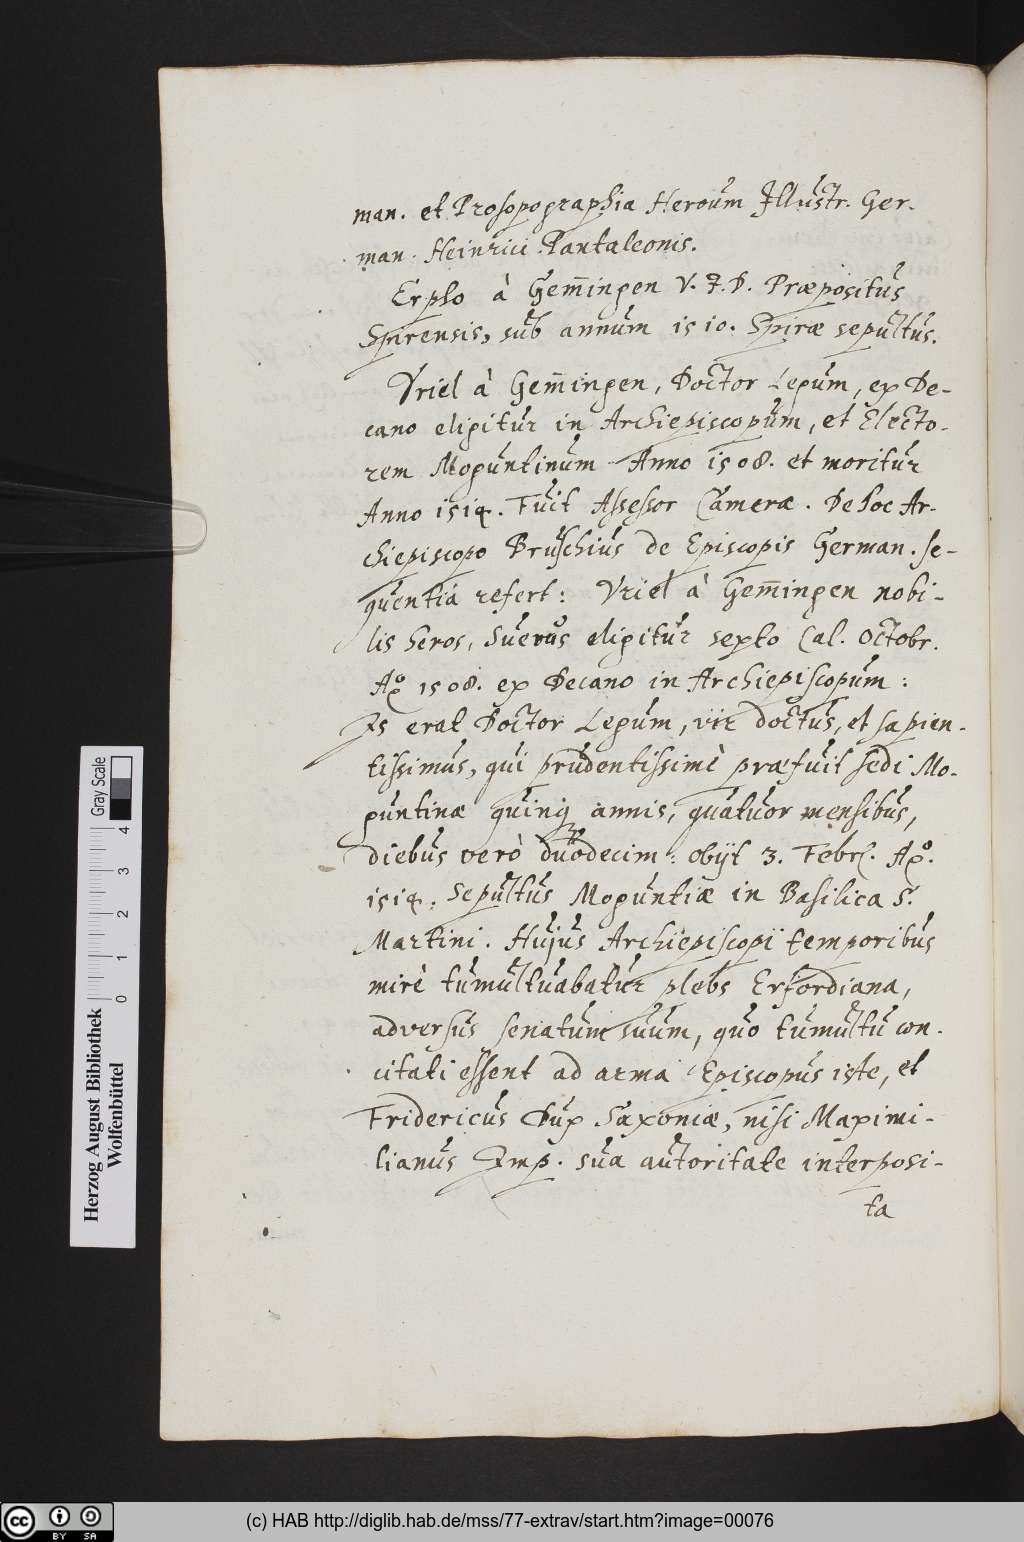 man. et Prosopographia Heroum Illustr. Ger-
man. Heinrici Pantaleonis.
Erpho à Gem̄ingen V. J. D. Præpositus
Spirensis, sub annum 1510. Spiræ sepultus.
Vriel à Gem̄ingen, Doctor Legum, ex De-
cano eligitur in Archiepiscopum, et Electo-
rem Moguntinum Anno 1508. et moritur
Anno 1514. Fuit Assessor Cameræ. De hoc Ar-
chiepiscopo Bruschius de Episcopis German. se-
quentia refert: Vriel à Gem̄ingen nobi-
lis heros, Suevus eligitur sexto Cal. Octobr.
Aõ 1508. ex Decano in Archiepiscopum:
Is erat Doctor Legum, vir doctus, et sapien-
tissimus, qui prudentissimè præfuit sedi Mo-
guntinæ quinq annis, quatuor mensibus,
diebus verò duodecim: obijt 3. Febr. Aõ.
1514. Sepultus Moguntiæ in Basilica S.
Martini. Hujus Archiepiscopi temporibus
mirè tumultuabatur plebs Erfordiana,
adversus senatum suum, quo tumultu con-
citati essent ad arma Episcopus iste, et
Fridericus Dux Saxoniæ, nisi Maximi-
lianus Imp. sua autoritate interposi-
ta
Herzog August Bibliothek
Wolfenbüttel
Gray Scale
0 1 2 3 4
cc BY SA
(c) HAB http://diglib.hab.de/mss/77-extrav/start.htm?image=00076